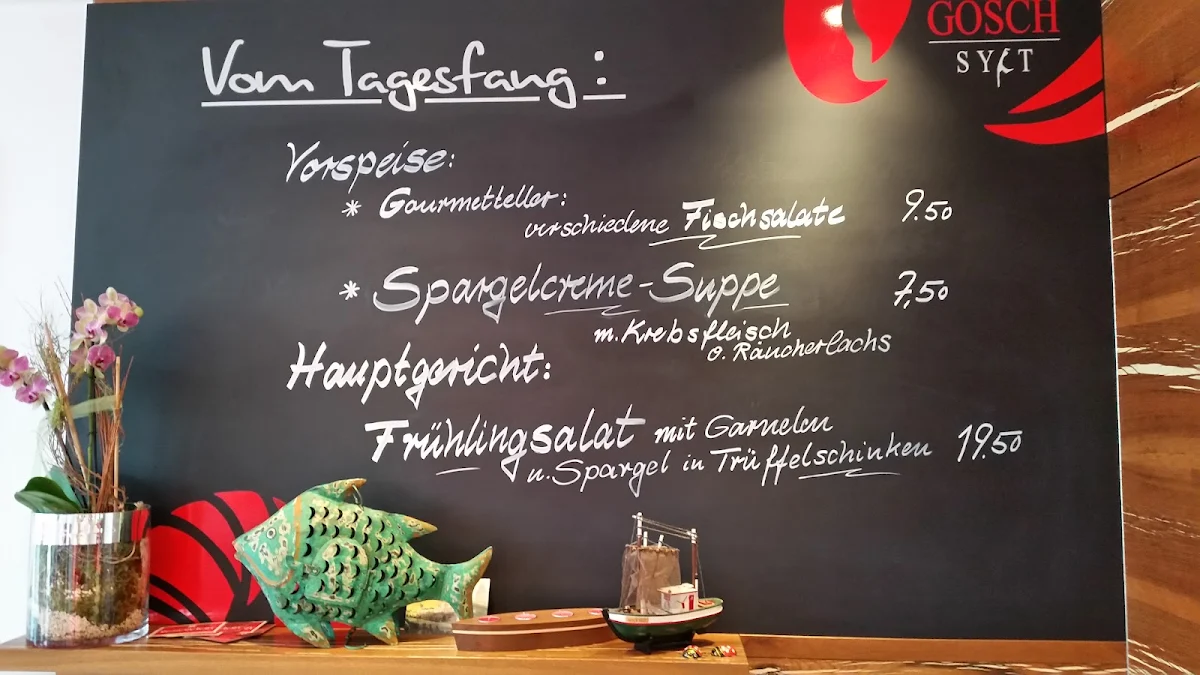 GOSCH
SYLT
Vom Tagesfang:
Vorspeise:
* Gourmetteller:
verschiedene Fischsalate 9.50
* Spargelcreme-Suppe 7,50
m. Krebsfleisch
o. Räucherlachs
Hauptgericht:
Frühlingsalat mit Garnelen
u. Spargel in Trüffelschinken 19.50